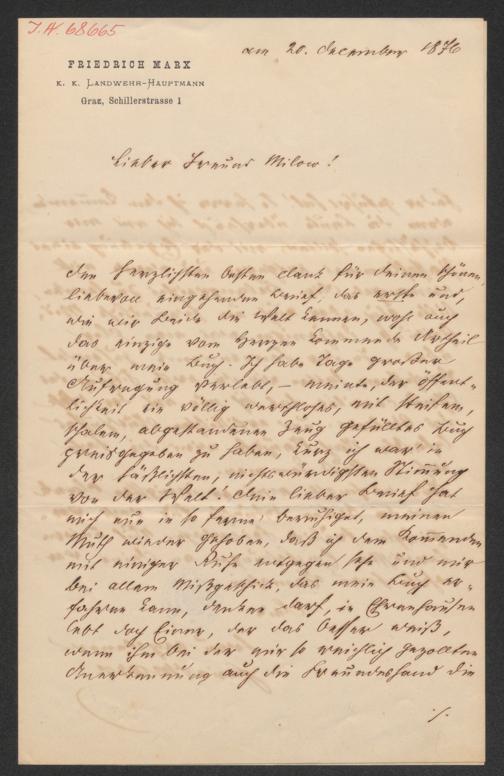 J.N. 68665
am 20. December 1876
FRIEDRICH MARX
K. K. LANDWEHR-HAUPTMANN
Graz, Schillerstrasse 1
Lieber Freund Milow!
den herzlichsten besten Dank für deinen schönen,
liebevoll eingehenden Brief, das erste und,
wie wir Beide die Welt kennen, wohl auch
das einzige vom Herzen kommende Urtheil
über mein Buch. Ich habe Tage großer
Aufregung verlebt, – meinte, der Öffent-
lichkeit ein völlig werthloses, mit steifem,
schalem, abgestandenen Zeug gefülltes Buch
preisgegeben zu haben, kurz ich war in
der häßlichsten, nichtswürdigsten Stimmung
von der Welt. Dein lieber Brief hat
mich nun in so ferne beruhiget, meinen
Muth wieder gehoben, daß ich dem Kommenden
mit einiger Ruhe entgegen sehe und mir
bei allem Mißgeschick, das mein Buch er-
fahren kann, denken darf, in Ehrenhausen
lebt doch Einer, der das besser weiß,
wenn ihm bei der mir so reichlich gezollten
Anerkennung auch die Freundeshand die
./.